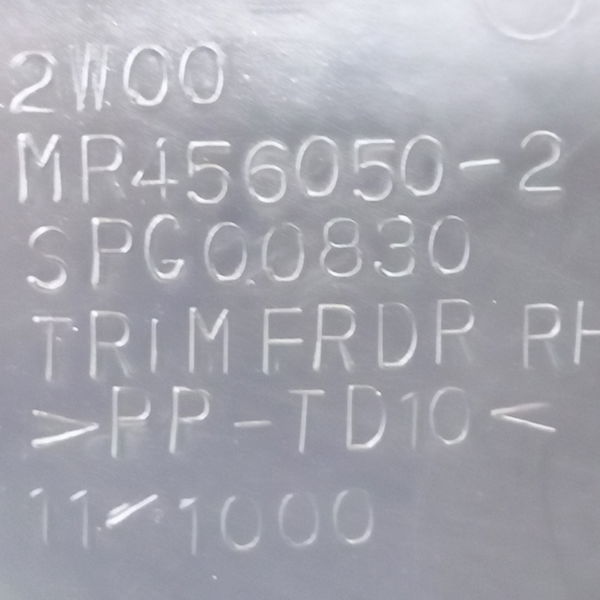 2W00
MR456050-2
SPG00830
TRIM FR DR RH
>PP-TD10<
11/1000